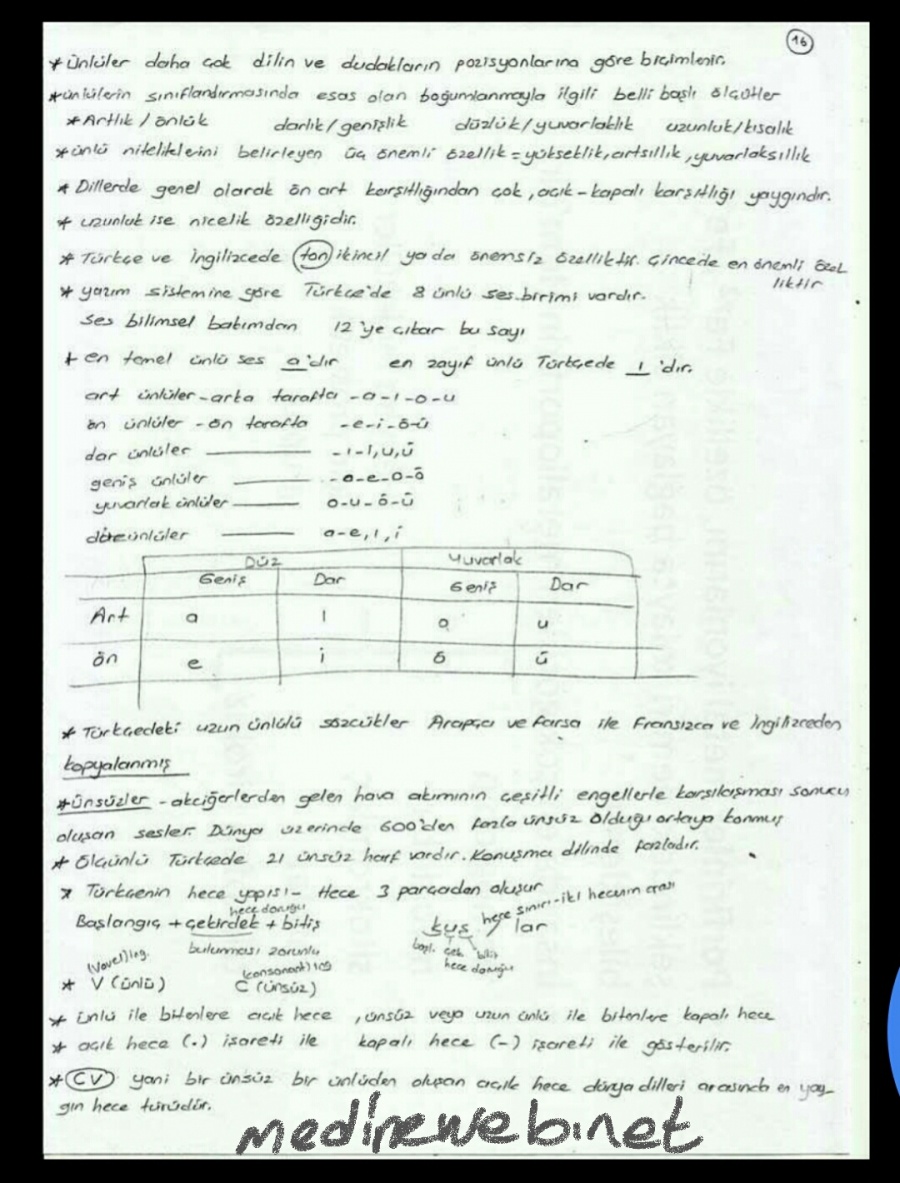 16
* Ünlüler daha çok dilin ve dudakların pozisyonlarına göre biçimlenir.
* ünlülerin sınıflandırmasında esas olan boğumlanmayla ilgili belli başlı ölçütler
* Artlık / önlük darlık / genişlik düzlük / yuvarlaklık uzunluk / kısalık
* ünlü niteliklerini belirleyen üç önemli özellik = yükseklik, artsıllık, yuvarlaksıllık
* Dillerde genel olarak ön art karşıtlığından çok, açık - kapalı karşıtlığı yaygındır.
* uzunluk ise nicelik özelliğidir.
* Türkçe ve İngilizcede ton ikincil ya da önemsiz özelliktir. Çincede en önemli özel
liktir
* yazım sistemine göre Türkçe'de 8 ünlü ses birimi vardır.
Ses bilimsel bakımdan 12'ye çıkar bu sayı
* en temel ünlü ses a'dır en zayıf ünlü Türkçede ı'dır.
art ünlüler - arka tarafta - a - ı - o - u
ön ünlüler - ön tarafta - e - i - ö - ü
dar ünlüler - ı - i, u, ü
geniş ünlüler - a - e - o - ö
yuvarlak ünlüler o - u - ö - ü
düz ünlüler a - e, ı, i
Düz Yuvarlak
Geniş Dar Geniş Dar
Art a ı o u
ön e i ö ü
* Türkçedeki uzun ünlülü sözcükler Arapça ve Farsa ile Fransızca ve İngilizceden
kopyalanmış
* Ünsüzler - akciğerlerden gelen hava akımının çeşitli engellerle karşılaşması sonucu
oluşan sesler. Dünya üzerinde 600'den fazla ünsüz olduğu ortaya konmuş
* Ölçünlü Türkçede 21 ünsüz harf vardır. Konuşma dilinde fazladır.
* Türkçenin hece yapısı - Hece 3 parçadan oluşur
hece doruğu hece sınırı - iki hecenin arası
Başlangıç + çekirdek + bitiş kuş / lar
bulunması zorunlu başl. çek. bitiş
hece doruğu
(Vowel) ing. (consonant) ing
* V (ünlü) C (ünsüz)
* ünlü ile bitenlere açık hece, ünsüz veya uzun ünlü ile bitenlere kapalı hece
* açık hece (.) işareti ile kapalı hece (-) işareti ile gösterilir.
* CV yani bir ünsüz bir ünlüden oluşan açık hece dünya dilleri arasında en yay-
gın hece türüdür.
medinewebinet